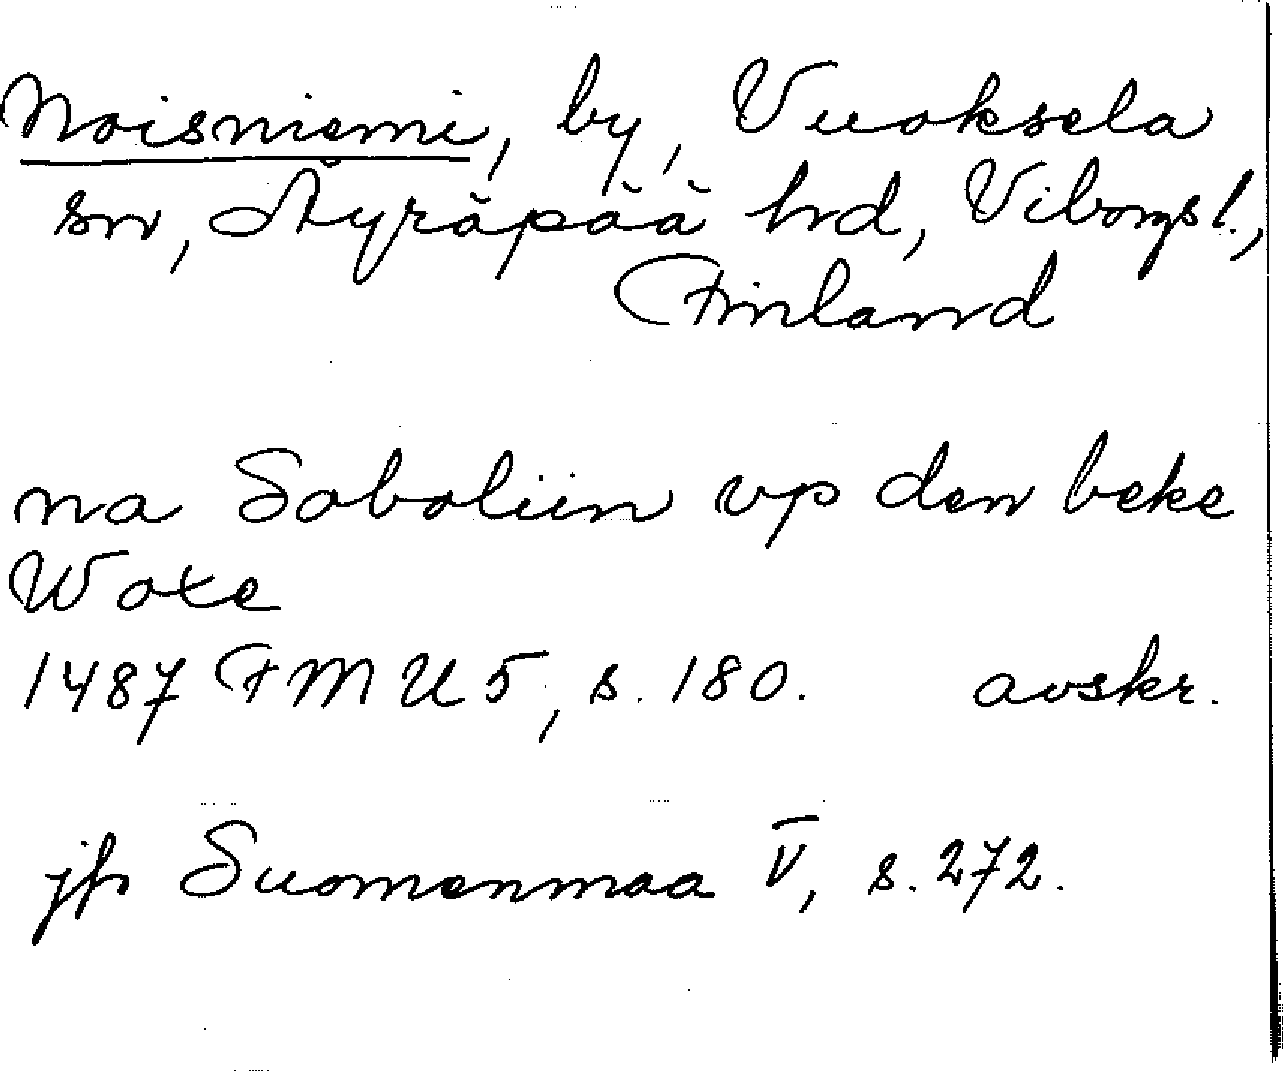 Noisniemi, by, Vuoksela
sn, Äyräpää hrd, Viborgs l.,
Finland
na Soboliin vp den beke
Woxe
1487 FMU 5, s. 180. avskr.
jfr Suomenmaa V, s. 272.